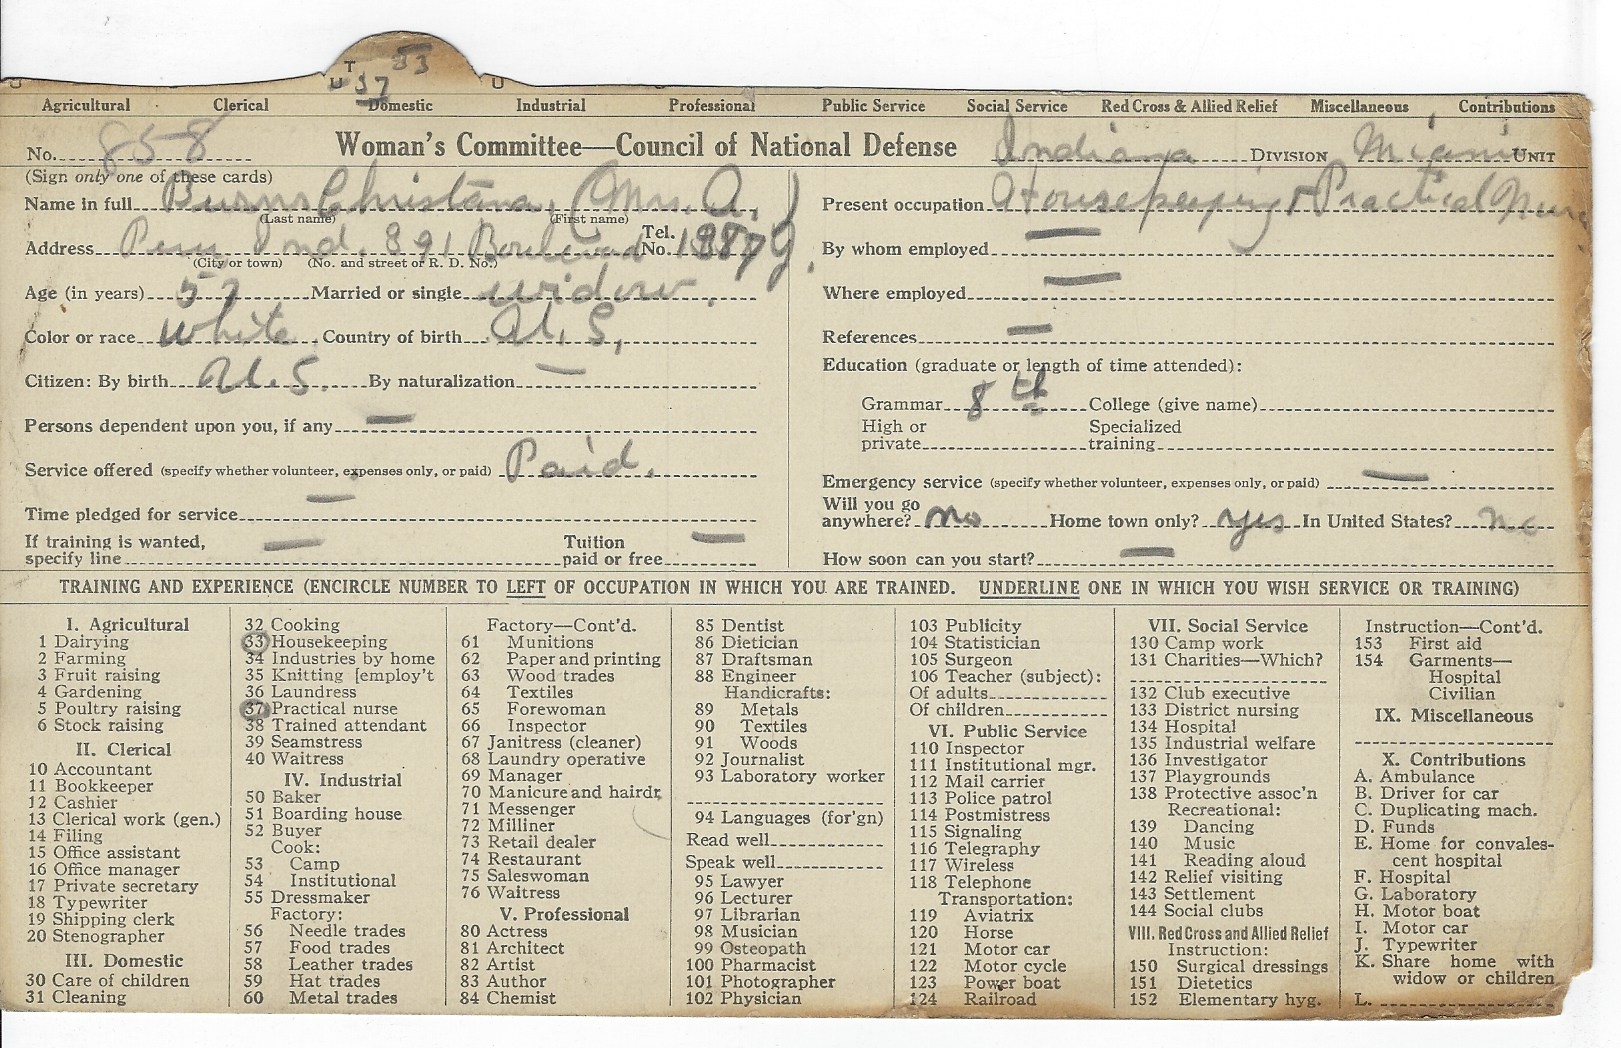 33
T
U 37 U
Agricultural Clerical Domestic Industrial Professional Public Service Social Service Red Cross & Allied Relief Miscellaneous Contributions
No. 858 Woman's Committee—Council of National Defense Indiana DIVISION Miami UNIT
(Sign only one of these cards)
Name in full Burns Christana, (Mrs. A.)
(Last name) (First name)
Address Peru Ind. 891 Boulevard Tel. No. 1887 J.
(City or town) (No. and street or R. D. No.)
Age (in years) 57 Married or single widow.
Color or race White Country of birth U. S,
Citizen: By birth U. S. By naturalization —
Persons dependent upon you, if any —
Service offered (specify whether volunteer, expenses only, or paid) Paid.
Time pledged for service —
If training is wanted, specify line — Tuition paid or free —
Present occupation Housekeeping & Practical Nurse
By whom employed —
Where employed —
References —
Education (graduate or length of time attended):
Grammar 8th College (give name)
High or private Specialized training
Emergency service (specify whether volunteer, expenses only, or paid) —
Will you go anywhere? no Home town only? yes In United States? no
How soon can you start? —
TRAINING AND EXPERIENCE (ENCIRCLE NUMBER TO LEFT OF OCCUPATION IN WHICH YOU ARE TRAINED. UNDERLINE ONE IN WHICH YOU WISH SERVICE OR TRAINING)
I. Agricultural
1 Dairying
2 Farming
3 Fruit raising
4 Gardening
5 Poultry raising
6 Stock raising
II. Clerical
10 Accountant
11 Bookkeeper
12 Cashier
13 Clerical work (gen.)
14 Filing
15 Office assistant
16 Office manager
17 Private secretary
18 Typewriter
19 Shipping clerk
20 Stenographer
III. Domestic
30 Care of children
31 Cleaning
32 Cooking
33 Housekeeping
34 Industries by home
35 Knitting [employ't
36 Laundress
37 Practical nurse
38 Trained attendant
39 Seamstress
40 Waitress
IV. Industrial
50 Baker
51 Boarding house
52 Buyer
Cook:
53 Camp
54 Institutional
55 Dressmaker
Factory:
56 Needle trades
57 Food trades
58 Leather trades
59 Hat trades
60 Metal trades
Factory—Cont'd.
61 Munitions
62 Paper and printing
63 Wood trades
64 Textiles
65 Forewoman
66 Inspector
67 Janitress (cleaner)
68 Laundry operative
69 Manager
70 Manicure and hairdr.
71 Messenger
72 Milliner
73 Retail dealer
74 Restaurant
75 Saleswoman
76 Waitress
V. Professional
80 Actress
81 Architect
82 Artist
83 Author
84 Chemist
85 Dentist
86 Dietician
87 Draftsman
88 Engineer
Handicrafts:
89 Metals
90 Textiles
91 Woods
92 Journalist
93 Laboratory worker
94 Languages (for'gn)
Read well
Speak well
95 Lawyer
96 Lecturer
97 Librarian
98 Musician
99 Osteopath
100 Pharmacist
101 Photographer
102 Physician
103 Publicity
104 Statistician
105 Surgeon
106 Teacher (subject):
Of adults
Of children
VI. Public Service
110 Inspector
111 Institutional mgr.
112 Mail carrier
113 Police patrol
114 Postmistress
115 Signaling
116 Telegraphy
117 Wireless
118 Telephone
Transportation:
119 Aviatrix
120 Horse
121 Motor car
122 Motor cycle
123 Power boat
124 Railroad
VII. Social Service
130 Camp work
131 Charities—Which?
132 Club executive
133 District nursing
134 Hospital
135 Industrial welfare
136 Investigator
137 Playgrounds
138 Protective assoc'n
Recreational:
139 Dancing
140 Music
141 Reading aloud
142 Relief visiting
143 Settlement
144 Social clubs
VIII. Red Cross and Allied Relief
Instruction:
150 Surgical dressings
151 Dietetics
152 Elementary hyg.
Instruction—Cont'd.
153 First aid
154 Garments—
Hospital
Civilian
IX. Miscellaneous
X. Contributions
A. Ambulance
B. Driver for car
C. Duplicating mach.
D. Funds
E. Home for convales-
cent hospital
F. Hospital
G. Laboratory
H. Motor boat
I. Motor car
J. Typewriter
K. Share home with
widow or children
L.